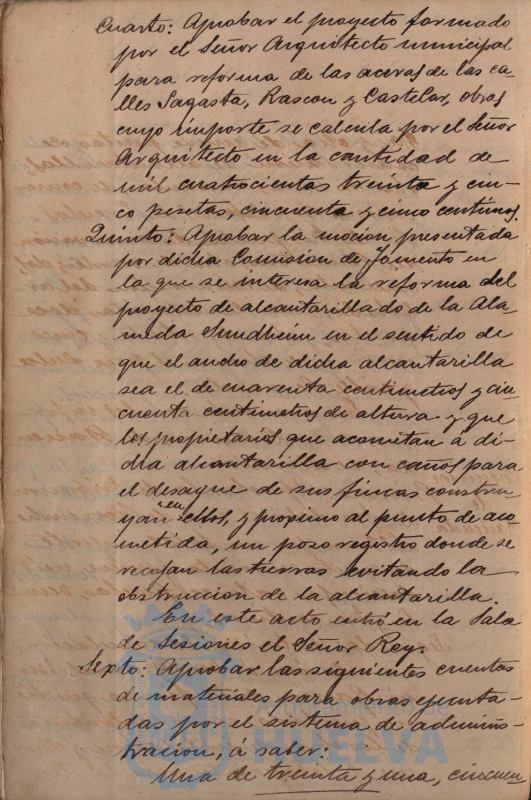 Cuarto: Aprobar el proyecto formado
por el Señor Arquitecto municipal
para reforma de las aceras de las ca-
lles Sagasta, Rascon y Castelar, obras
cuyo importe se calcula por el Señor
Arquitecto en la cantidad de
mil cuatrocientas treinta y cin-
co pesetas, cincuenta y cinco centimos.
Quinto: Aprobar la mocion presentada
por dicha Comision de Fomento en
la que se interesa la reforma del
proyecto de alcantarillado de la Ala-
meda Sundheim en el sentido de
que el ancho de dicha alcantarilla
sea el de cuarenta centimetros y cin
cuenta centimetros de altura y que
los propietarios que acometan á di-
cha alcantarilla con caños para
el desague de sus fincas constru
yan en ellos, y proximo al punto de aco
metida, un poso registro donde se
recojan las tierras evitando la
obstruccion de la alcantarilla.
En este acto entró en la Sala
de Sesiones el Señor Rey.
Sexto: Aprobar las siguientes cuentas
de materiales para obras ejecuta-
das por el sistema de adminis-
tracion, á saber:
HUELVA
Una de treinta y una, cincuen